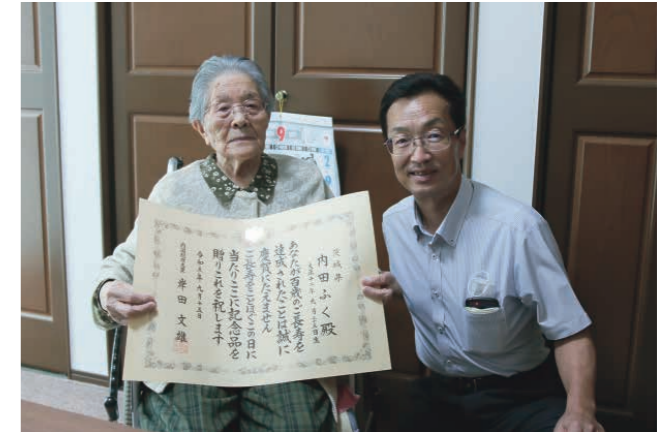 茨城県
内田ふく殿
大正十二年九月十五日生
あなたが百歳のご長寿を
達成されたことは誠に
慶賀にたえません
ご長寿をことほぐこの日に
当たりここに記念品を
贈りこれを祝します
令和五年九月十五日
内閣総理大臣 岸田文雄
9